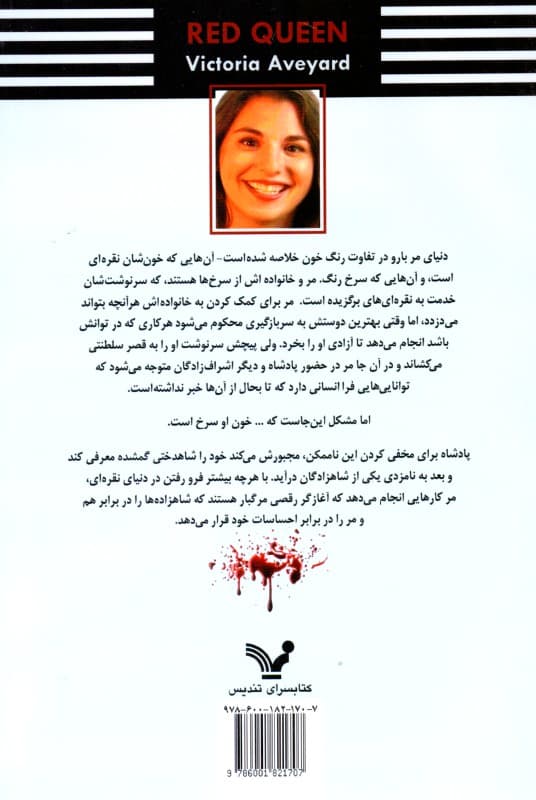 RED QUEEN
Victoria Aveyard
دنیای مر بارو در تفاوت رنگ خون خلاصه شده‌است- آن‌هایی که خون‌شان نقره‌ای
است، و آن‌هایی که سرخ رنگ. مر و خانواده اش از سرخ‌ها هستند، که سرنوشت‌شان
خدمت به نقره‌ای‌های برگزیده است.  مر برای کمک کردن به خانواده‌اش هرآنچه بتواند
می‌دزدد، اما وقتی بهترین دوستش به سربازگیری محکوم می‌شود هرکاری که در توانش
باشد انجام می‌دهد تا آزادی او را بخرد. ولی پیچش سرنوشت او را به قصر سلطنتی
می‌کشاند و در آن جا مر در حضور پادشاه و دیگر اشراف‌زادگان متوجه می‌شود که
توانایی‌هایی فرا انسانی دارد که تا بحال از آن‌ها خبر نداشته‌است.
اما مشکل این‌جاست که ... خون او سرخ است.
پادشاه برای مخفی کردن این ناممکن، مجبورش می‌کند خود را شاهدختی گمشده معرفی کند
و بعد به نامزدی یکی از شاهزادگان درآید. با هرچه بیشتر فرو رفتن در دنیای نقره‌ای،
مر کارهایی انجام می‌دهد که آغازگر رقصی مرگبار هستند که شاهزاده‌ها را در برابر هم
و مر را در برابر احساسات خود قرار می‌دهد.
کتابسرای تندیس
۹۷۸-۶۰۰-۱۸۲-۱۷۰-۷
9 786001 821707